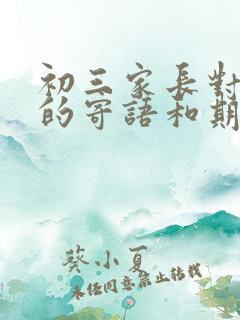 初三家長對
的寄語和期
葵小夏
未經同意禁止轉載